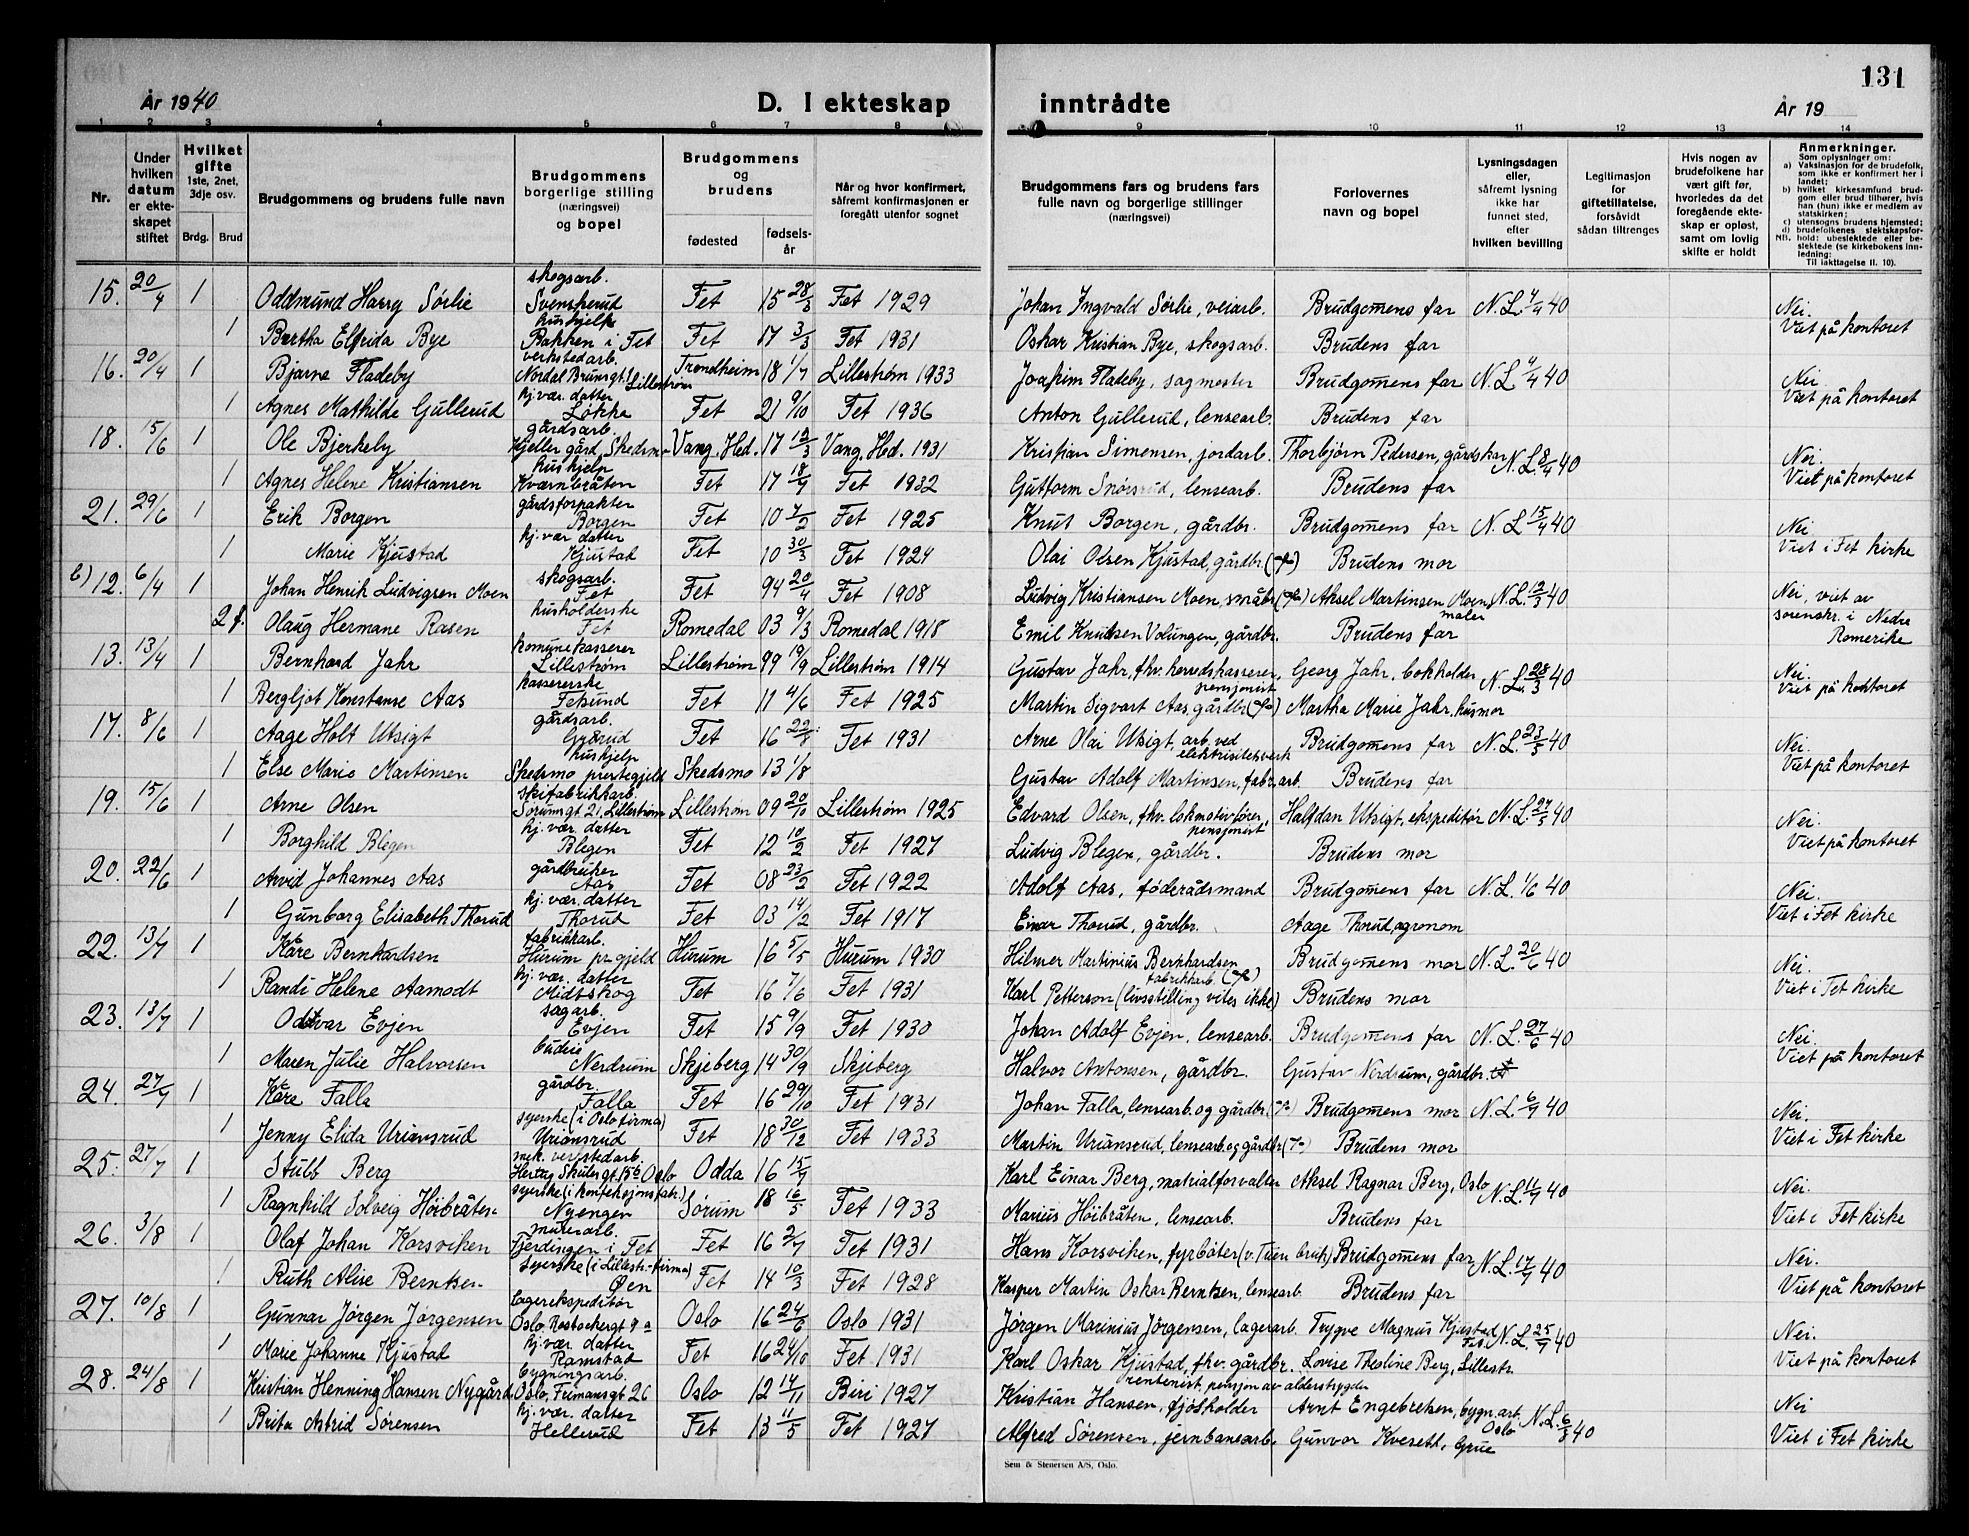 131
År 1940
D. I ekteskap inntrådte
År 19
1 2 3 4 5 6 7 8 9 10 11 12 13 14
Nr.
Under hvilken datum er ekteskapet stiftet
Hvilket gifte 1ste, 2net, 3dje osv.
Brdg. Brud
Brudgommens og brudens fulle navn
Brudgommens borgerlige stilling (næringsvei) og bopel
Brudgommens og brudens
fødested fødselsår
Når og hvor konfirmert, såfremt konfirmasjonen er foregått utenfor sognet
Brudgommens fars og brudens fars fulle navn og borgerlige stillinger (næringsvei)
Forlovernes navn og bopel
Lysningsdagen eller, såfremt lysning ikke har funnet sted, efter hvilken bevilling
Legitimasjon for giftetillatelse, forsåvidt sådan tiltrenges
Hvis nogen av brudefolkene har vært gift før, hvorledes da det foregående ekteskap er opløst, samt om lovlig skifte er holdt
Anmerkninger.
Som oplysninger om:
a) Vaksinasjon for de brudefolk, som ikke er konfirmert her i landet;
b) hvilket kirkesamfund brudgom eller brud tilhører, hvis han (hun) ikke er medlem av statskirken;
c) utensogns brudens hjemsted;
d) brudefolkenes slektskapsforhold: ubeslektede eller beslektede (se kirkebokens innledning:
NB.
Til iakttagelse II. 10).
15. 20/4 1 Oddmund Harry Sørlie skogsarb. Svenskerud Fet 15 28/3 Fet 1929 Johan Ingvald Sørlie, veiarb. Brudgomens far N.L. 4/4 40 Nei.
1 Bertha Elfrida Bye hushjelp Bakken i Fet Fet 17 3/3 Fet 1931 Oskar Kristian Bye, skogsarb. Brudens far Viet på kontoret
16. 20/4 1 Bjarne Fladeby verkstedarb. Nordal Brunsgt. 1 Lillestrøm Trondheim 18 1/7 Lillestrøm 1933 Joakim Fladeby, sagmester Brudgomens far N.L. 4/4 40 Nei
1 Agnes Mathilde Gullerud hj.vær. datter Løkka Fet 21 9/10 Fet 1936 Anton Gullerud, lensearb. Brudens far Viet på kontoret
18. 15/6 1 Ole Bjerkely gårdsarb. Kjeller gård, Skedsmo Vang, Hed. 17 12/3 Vang, Hed. 1931 Kristian Simensen, jordarb. Thorbjørn Pedersen, gårdskar N.L. 8/4 40 Nei.
1 Agnes Helene Kristiansen hushjelp Kværnbråten Fet 17 18/7 Fet 1932 Guttorm Snørsrud, lensearb. Brudens far Viet på kontoret
21. 29/6 1 Erik Borgen gårdsforpakter Borgen Fet 10 7/2 Fet 1925 Knut Borgen, gårdbr. Brudgomens far N.L. 15/4 40 Nei
1 Marie Kjustad hj. vær datter Kjustad Fet 10 30/3 Fet 1924 Olai Olsen Kjustad, gårdbr. Brudens mor Viet i Fet kirke
b) 12. 6/4 1 Johan Henrik Ludvigsen Moen skogsarb. Fet Fet 94 20/4 Fet 1908 Ludvig Kristiansen Moen, småbr. Aksel Martinsen Moen, maler N.L. 12/3 40 Nei, viet av
2 f. Olaug Hermane Rasen husholderske Fet Romedal 03 9/3 Romedal 1918 Emil Knutsen Volungen, gårdbr. Brudens far sorenskr. i Nedre Romerike
13. 13/4 1 Bernhard Jahr komunekasserer Lillestrøm Lillestrøm 99 19/9 Lillestrøm 1914 Gustav Jahr, fhv. herredskasserer, pensjonist Georg Jahr, bokholder N.L. 28/3 40 Nei.
1 Bergljot Konstanse Aas kassererske Fetsund Fet 11 4/6 Fet 1925 Martin Sigvart Aas, gårdbr. Martha Marie Jahr, husmor Viet på kontoret
17. 8/6 1 Aage Holt Utsigt gårdsarb. Fet 16 22/8 Fet 1931 Arne Olai Utsigt, arb. ved elektrisitetsverk Brudgomens far N.L. 23/5 40 Nei.
1 Else Marie Martinsen hushjelp Skedsmo prestegjeld Skedsmo 13 1/8 Gustav Adolf Martinsen, fabr.arb. Brudens far Viet på kontoret
19. 15/6 1 Arne Olsen skifabrikkarb. Sørumsgt 21, Lillestrøm Lillestrøm 09 20/10 Lillestrøm 1925 Edvard Olsen, fhv. lokomotivfører, pensjonist Halfdan Utsigt, ekspeditør N.L. 27/5 40 Nei.
1 Borghild Blegen hj. vær. datter Blegen Fet 12 10/2 Fet 1927 Ludvig Blegen, gårdbr. Brudens mor Viet på kontoret
20. 22/6 1 Arvid Johannes Aas gårdbruker Aas Fet 08 23/2 Fet 1922 Adolf Aas, føderådsmand Brudgomens far N.L. 1/6 40 Nei.
1 Gunborg Elisabeth Thorud hj. vær. datter Thorud Fet 03 14/2 Fet 1917 Einar Thorud, gårdbr. Aage Thorud, agronom Viet i Fet kirke
22. 13/7 1 Kåre Bernhardsen fabrikkarb. Hurum pr.gjeld Hurum 16 5/5 Hurum 1930 Hilmer Martinius Bernhardsen fabrikkarb. Brudgomens mor N.L. 20/6 40 Nei.
1 Randi Helene Aamodt hj. vær. datter Midtskog Fet 16 7/6 Fet 1931 Karl Petterson (livsstilling vites ikke) Brudens mor Viet i Fet kirke
23. 13/7 1 Oddvar Evjen sagarb. Evjen Fet 15 9/9 Fet 1930 Johan Adolf Evjen, lensearb. Brudgomens far N.L. 27/6 40 Nei.
1 Maren Julie Halvorsen budeie Nerdrum Skjeberg 14 30/9 Skjeberg Halvor Antonsen, gårdbr. Gustav Nerdrum, gårdbr. Viet på kontoret
24. 27/7 1 Kåre Falla gårdbr. Falla Fet 16 29/10 Fet 1931 Johan Falla, lensearb. og gårdbr. Brudgomens mor N.L. 6/7 40 Nei.
1 Jenny Elida Uriansrud syerske (i Oslo firma) Uriansrud Fet 18 30/12 Fet 1933 Martin Uriansrud, lensearb. og gårdbr. Brudens mor Viet i Fet kirke
25. 27/7 1 Stubb Berg mek. verkstedarb. Hertug Skules gt. 15 b Oslo Odda 16 15/7 Karl Einar Berg, matrialforvalter Aksel Ragnar Berg, Oslo N.L. 11/7 40 Nei.
1 Ragnhild Solveig Høibråten syerske (i konfeksjonsfabr.) Nyengen Sørum 18 16/5 Fet 1933 Marius Høibråten, lensearb. Brudens far Viet i Fet kirke
26. 3/8 1 Olaf Johan Korsviken murerarb. Fjerdingen i Fet Fet 16 2/7 Fet 1931 Hans Korsviken, fyrbøter (v. Tuen bruk) Brudgomens far N.L. 17/7 40 Nei.
1 Ruth Alise Berntsen syerske (i Lillestr.-firma) Øen Fet 14 10/3 Fet 1928 Kasper Martin Oskar Berntsen, lensearb. Brudens far Viet på kontoret
27. 10/8 1 Gunnar Jørgen Jørgensen lagerekspeditør Oslo, Rostockergt 9 a Oslo 16 24/6 Oslo 1931 Jørgen Marinius Jørgensen, lagerarb. Trygve Magnus Kjustad, Fet N.L. 25/7 40 Nei.
1 Marie Johanne Kjustad hj. vær. datter Ramstad Fet 16 24/10 Fet 1931 Karl Oskar Kjustad, fhv. gårdbr. rentenist, pensjon av alderstrygden Lovise Theoline Berg, Lillestr. Viet på kontoret
28. 24/8 1 Kristian Henning Hansen Nygård bygningsarb. Oslo, Frimansgt 26 Oslo 12 14/11 Biri 1927 Kristian Hansen, fjøsholder Arnt Engebretsen, bygn.arb. Oslo N.L. 6/8 40 Nei
1 Brita Astrid Sørensen hj. vær. datter Hellerud Fet 13 11/5 Fet 1927 Alfred Sørensen, jernbanearb. Gunvor Kveseth, Grue Viet i Fet kirke
Sem & Stenersen A/S, Oslo.